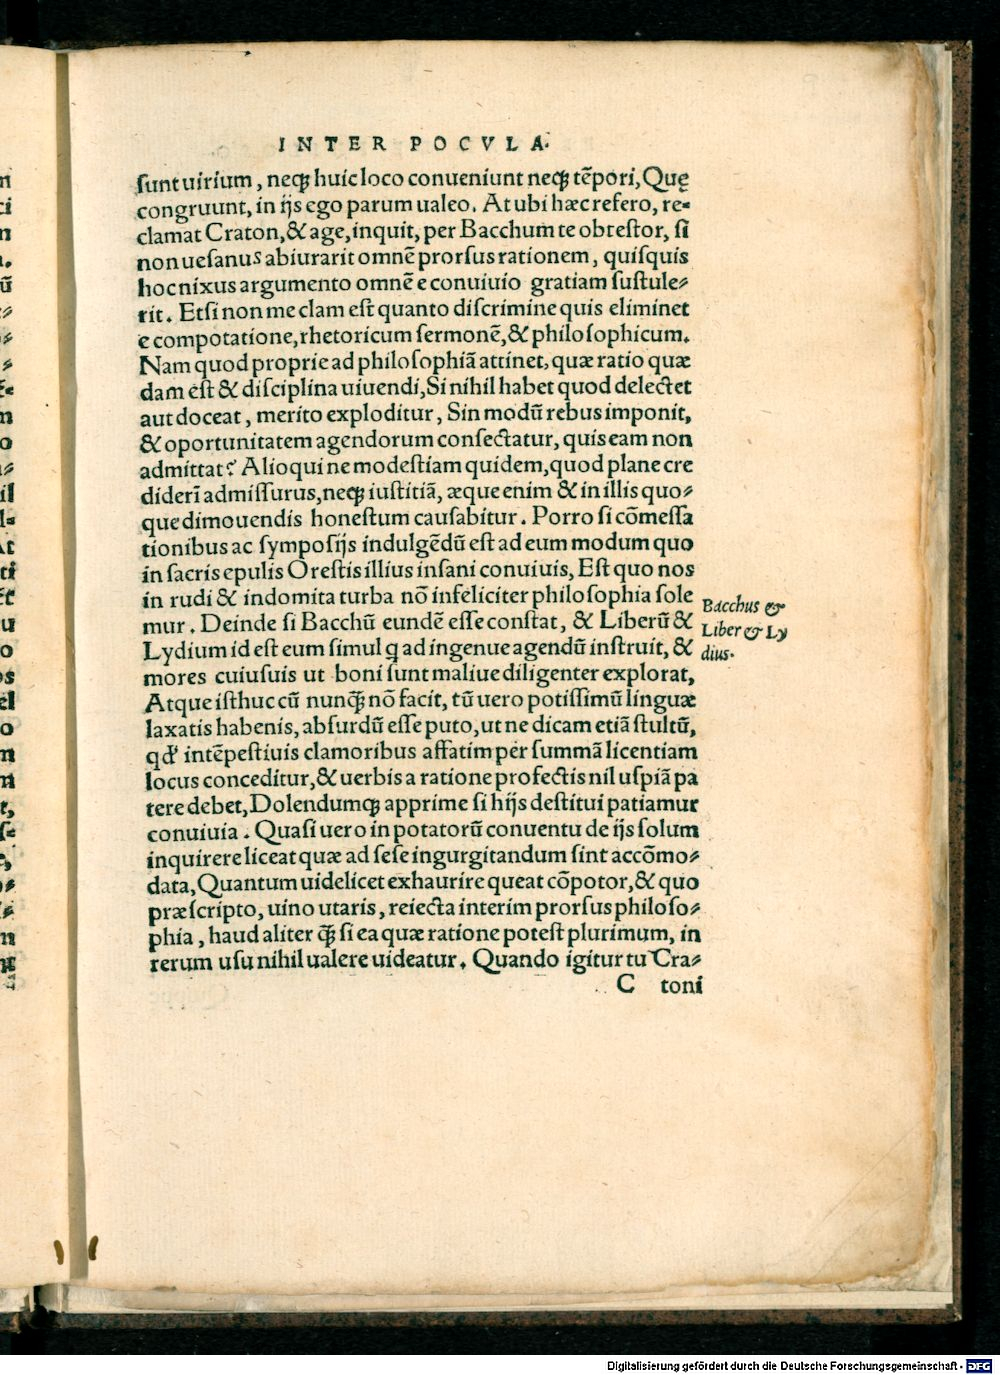 INTER POCVLA.
sunt uirium, neqꝫ huic loco conueniunt neqꝫ tẽpori, Quę
congruunt, in ijs ego parum ualeo. At ubi hæc refero, re-
clamat Craton, & age, inquit, per Bacchum te obtestor, si
non uesanus abiurarit omnẽ prorsus rationem, quisquis
hoc nixus argumento omnẽ e conuiuio gratiam sustule-
rit. Etsi non me clam est quanto discrimine quis eliminet
e compotatione, rhetoricum sermonẽ, & philosophicum.
Nam quod proprie ad philosophiã attinet, quæ ratio quæ
dam est & disciplina uiuendi, Si nihil habet quod delectet
aut doceat, merito exploditur, Sin modũ rebus imponit,
& oportunitatem agendorum consectatur, quis eam non
admittat? Alioqui ne modestiam quidem, quod plane cre
diderĩ admissurus, neqꝫ iustitiã, æque enim & in illis quo-
que dimouendis honestum causabitur. Porro si cõmessa
tionibus ac symposijs indulgẽdũ est ad eum modum quo
in sacris epulis Orestis illius insani conuiuis, Est quo nos
in rudi & indomita turba nõ infeliciter philosophia sole
mur. Deinde si Bacchũ eundẽ esse constat, & Liberũ &
Lydium id est eum simul q ad ingenue agendũ instruit, &
mores cuiusuis ut boni sunt maliue diligenter explorat,
Atque isthuc cũ nunqꝫ̃ nõ facit, tũ uero potissimũ linguæ
laxatis habenis, absurdũ esse puto, ut ne dicam etiã stultũ,
qđ intẽpestiuis clamoribus affatim per summã licentiam
locus conceditur, & uerbis a ratione profectis nil uspiã pa
tere debet, Dolendumqꝫ apprime si hijs destitui patiamur
conuiuia. Quasi uero in potatorũ conuentu de ijs solum
inquirere liceat quæ ad sese ingurgitandum sint accõmo-
data, Quantum uidelicet exhaurire queat cõpotor, & quo
præscripto, uino utaris, reiecta interim prorsus philoso-
phia, haud aliter qꝫ̃ si ea quæ ratione potest plurimum, in
rerum usu nihil ualere uideatur. Quando igitur tu Cra-
C toni
Bacchus &
Liber & Ly
dius.
Digitalisierung gefördert durch die Deutsche Forschungsgemeinschaft - DFG